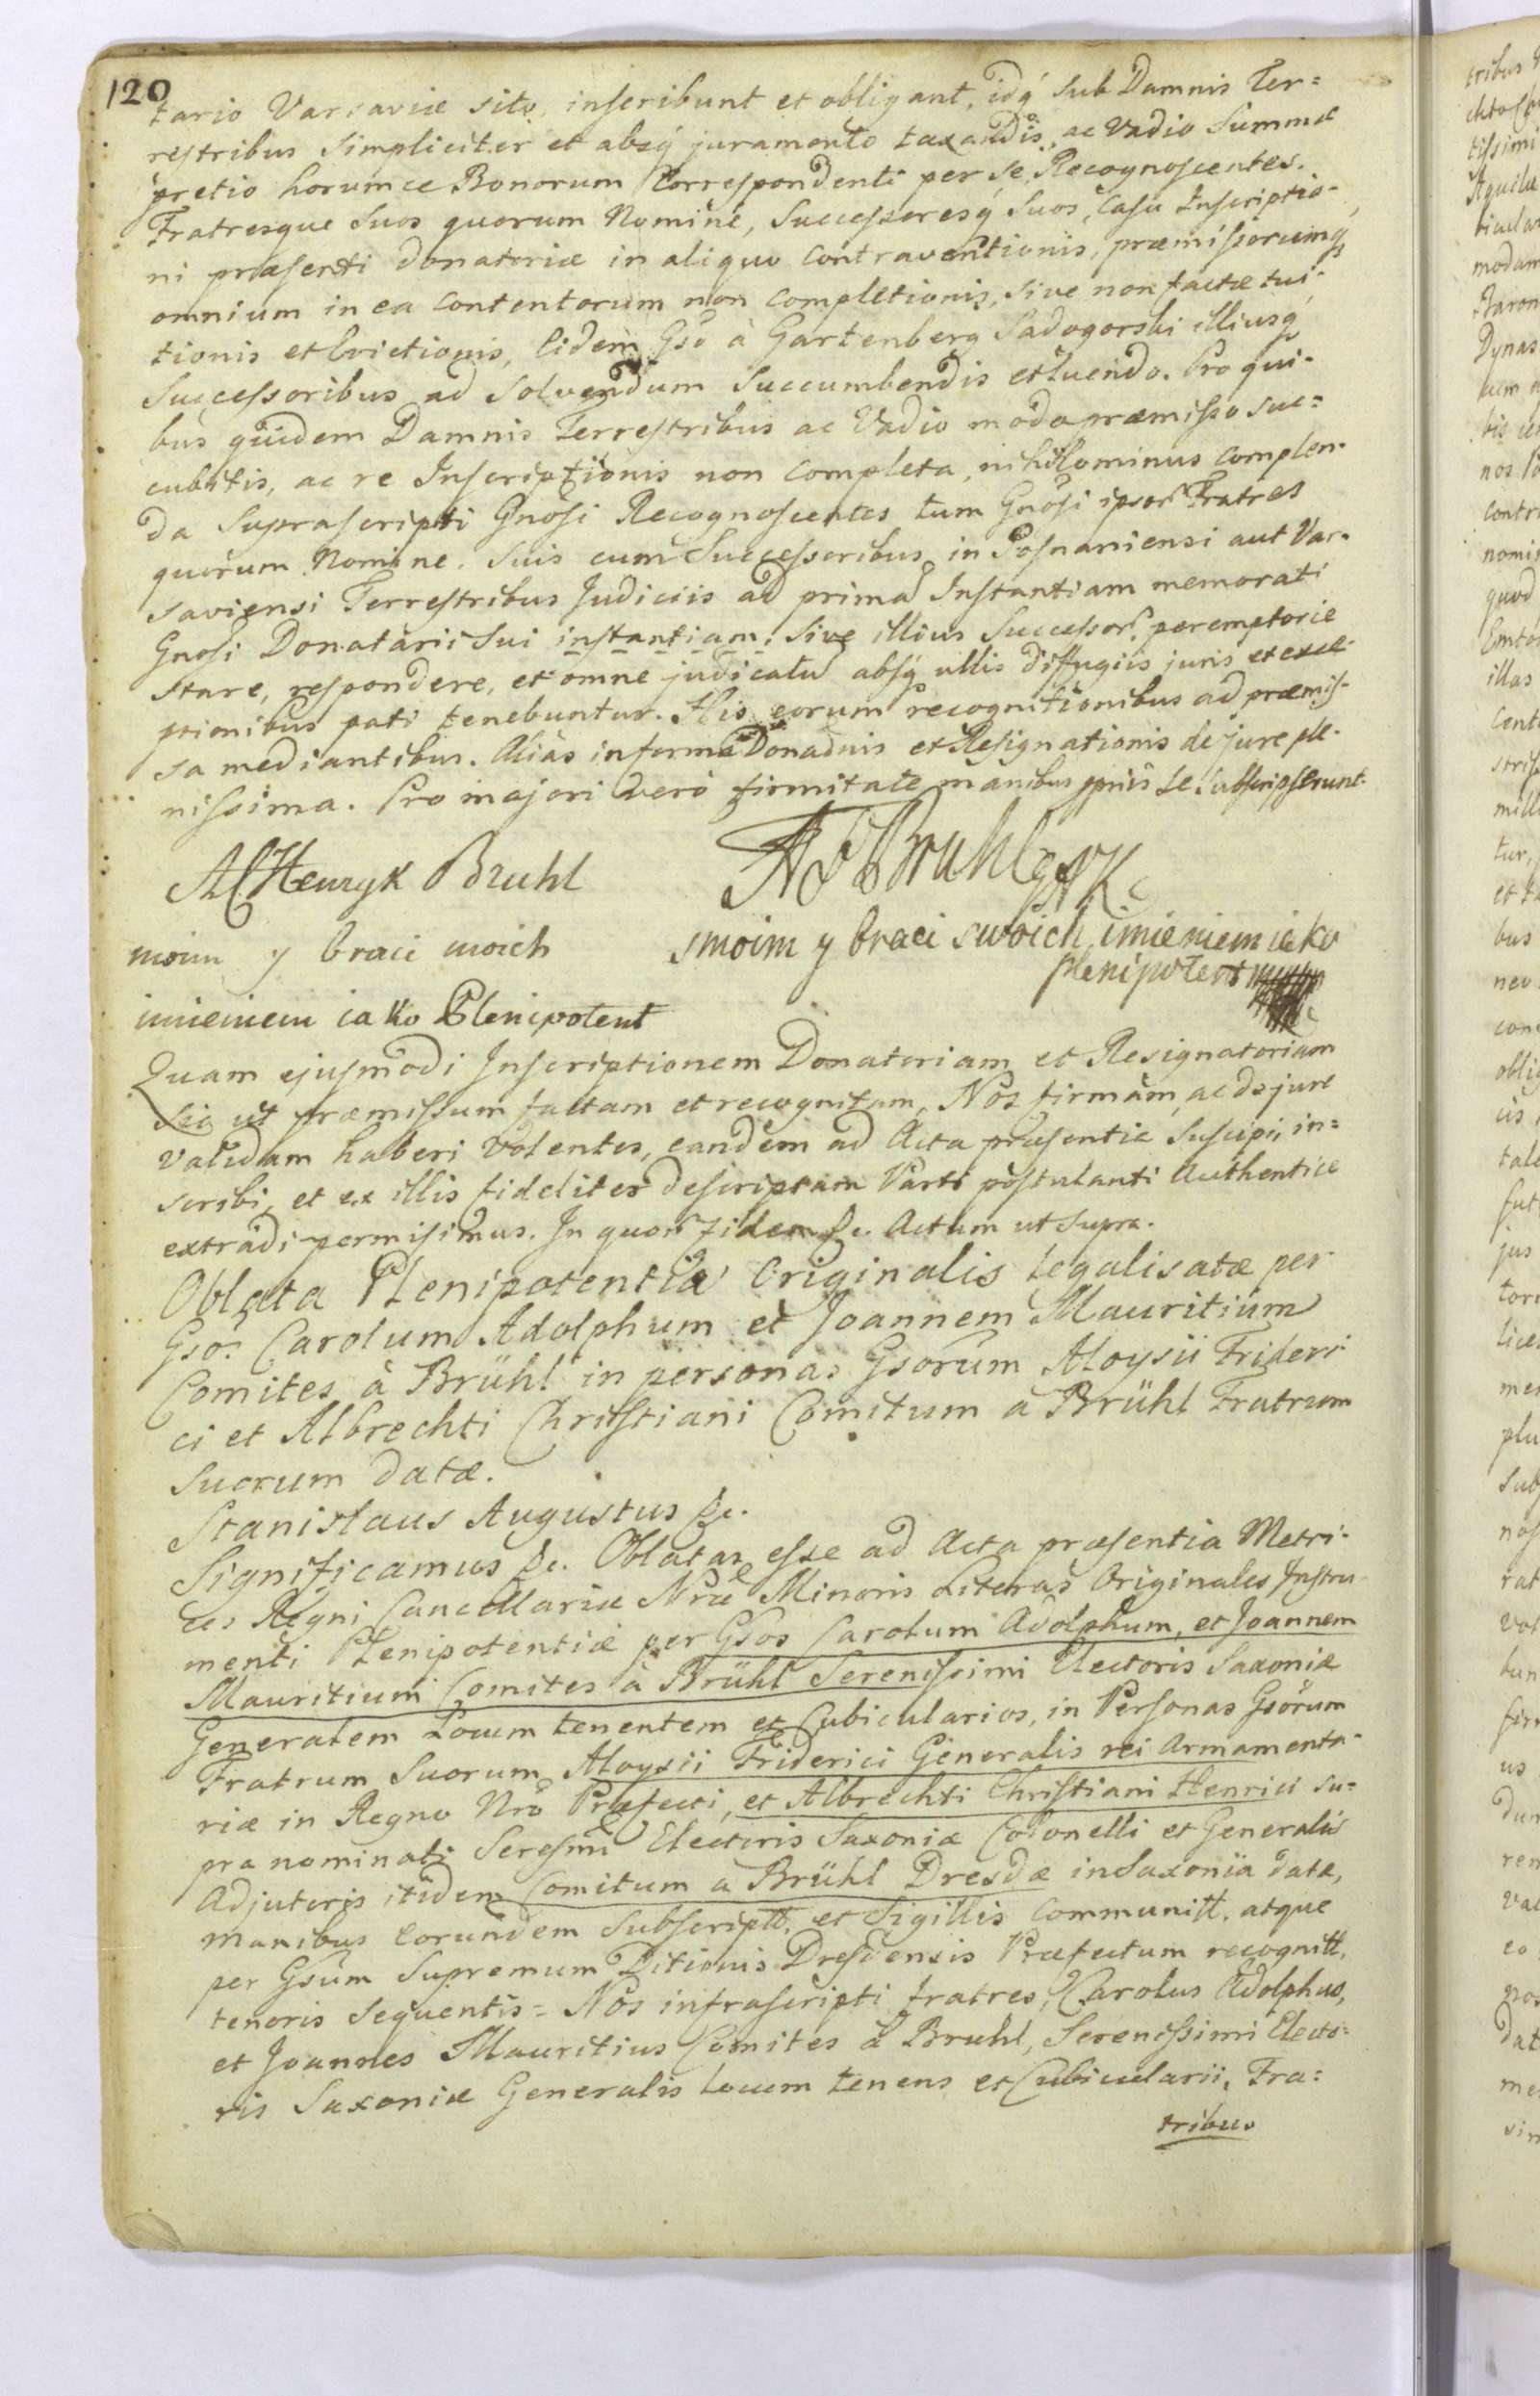 120
tario Varsaviæ sito, inscribunt et obligant, idq́ sub Damnis Ter=
restribus simpliciter et absq́ juramento taxandis, ac Vadio Summæ
pretio horumce Bonorum Correspondenti per se Recognoscentes.
Fratresque suos quorum Nomine, Successoresq́ suos, Casu Inscriptio-
ni præsenti donatoriæ in aliquo Contraventionis, præmissorumq́
omnium in ea Contentorum non Completionis, sive non factæ tui-
tionis et Evictionis, Eidem Gso à Gartenberg Sadogorski illiusq́
Successoribus ad solvendum Succumbendis et luendo. Pro qui-
bus quidem Damnis Terrestribus ac Vadio modo præmisso suc=
cubitis, ac re Inscriptionis non Completa, nihilominus Complen-
da Suprascripti Gnosi Recognoscentes tum Gnosi ipsor Fratres
quorum Nomine, suis cum Successoribus in Posnaniensi aut Var-
saviensi Terrestribus Judiciis ad prima Instantiam memorati
Gnosi Donatarii sui instantiam, sive illius Successor. peremptorie
stare, respondere, et omne judicatu absq́ ullis diffugiis juris et exce-
ptionibus pati tenebuntur. His eorum recognitionibus ad præmis-
sa mediantibus. Alias in forma Donaõnis et Resignationis de jure ple-
nissima. Pro majori vero firmitate manibus ppriis se subscripserunt.
Henryk Bruhl
Bruhl
moim y braci moich
smoim y braci swoich imieniem iako
plenipotent
imieniem iako Plenipotent
Quam ejusmodi Inscriptionem Donatoriam et Resignatoriam
sic ut præmissum factam et recognitam, Nos firmam, ac de jure
validam haberi volentes, eandem ad Acta præsentia Suscipi, in=
scribi, et ex illis fideliter descriptam Parti postulanti Authentice
extradi permisimus. In quor fidem &c. Actum ut supra.
Oblata Plenipotentiæ Originalis legalisatæ per
Gsos Carolum Adolphum et Joannem Mauritium
Comites à Brühl in personas Gsorum Aloysii Frideri
ci et Albrechti Christiani Comitum a Brühl Fratrum
suorum datæ.
Stanislaus Augustus &c.
Significamus &c. Oblatas esse ad Acta præsentia Metri-
ces Regni Cancellariæ Nræ Minoris Literas Originales Instru
menti Plenipotentiæ per Gsos Carolum Adolphum, et Joannem
Mauritium Comites à Brühl Serenissimi Electoris Saxoniæ
Generalem Locum tenentem et Cubicularios, in Personas Gsorum
Fratrum Suorum Aloysii Friderici Generalis rei Armamenta-
riæ in Regno Nrõ Præfecti, et Albrechti Christiani Henrici su=
pra nominati Seresmi Electoris Saxoniæ Colonelli et Generalis
Adjutoris itidem Comitum a Brühl Dresdæ in Saxonia datæ,
manibus Eorundem subscriptt. et Sigillis Communitt. atque
per Gsum Supremum Ditionis Dresdensis Præfectum recognitt,
tenoris sequentis = Nos infrascripti fratres, Carolus Adolphus,
et Joannes Mauritius Comites à Bruhl, Serenissimi Electo=
ris Saxoniæ Generalis Locum tenens et Cubicularii, Fra=
tribus